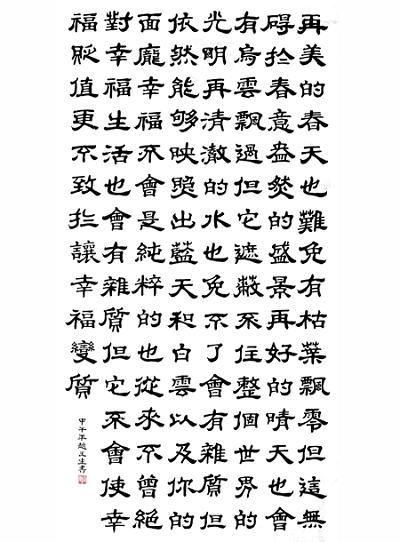 再美的春天也難免有枯葉飄零但這無
碍於春意盎然的盛景再好的晴天也會
有烏雲飄過但它遮蔽不住整個世界的
光明再清澈的水也免不了會有雜质但
依然能够映照出藍天和白雲以及你的
面龐幸福不會是純粹的也從來不曾絕
對幸福生活也會有雜质但它不會使幸
福貶值更不致於讓幸福變质
甲午年趙玉生書